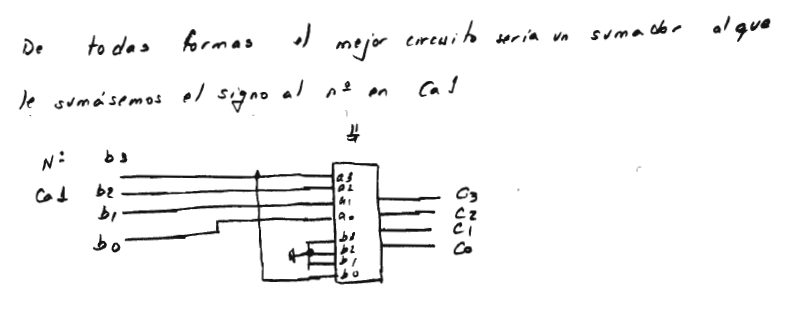 De todas formas el mejor circuito sería un sumador al que
le sumásemos el signo al nº en Ca1
Nº b3
Ca1 b2
b1
b0
a3
a2
a1
a0
b3
b2
b1
b0
C3
C2
C1
C0